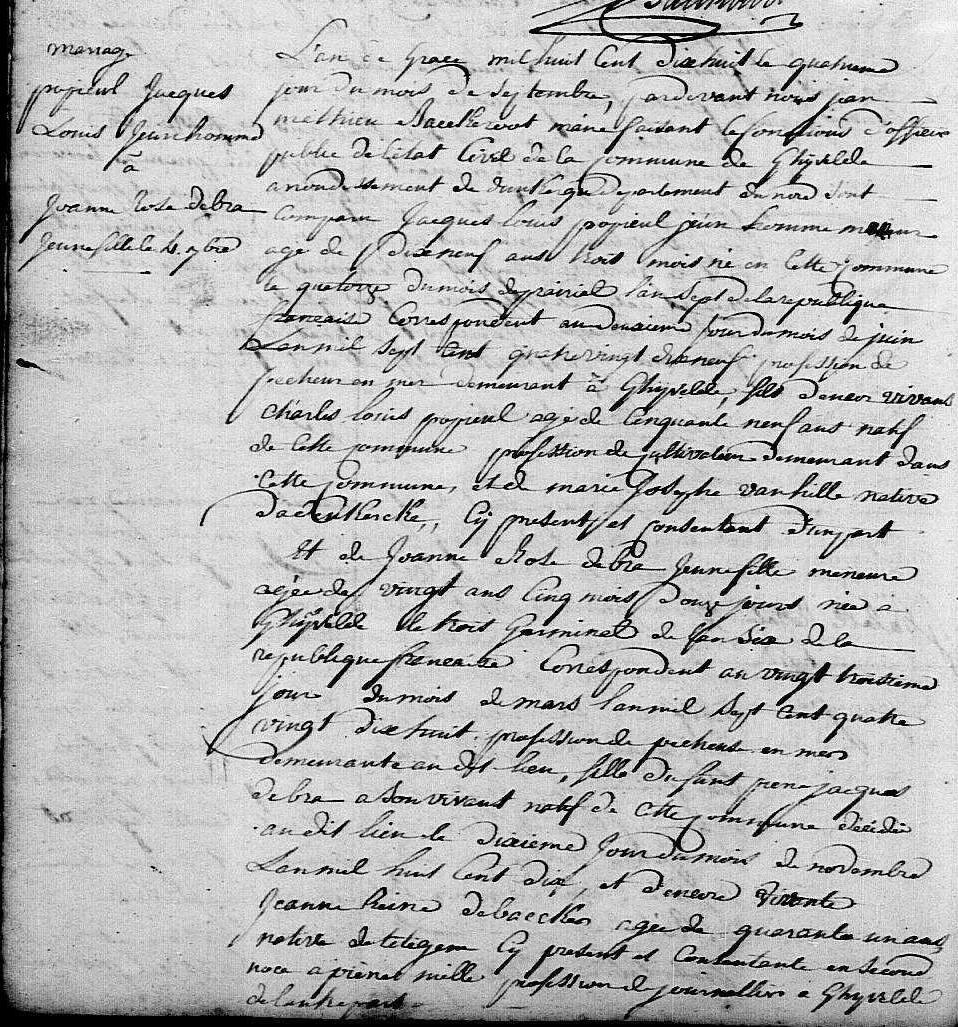 mariage
popieul Jacques
Louis Jeun homme
à
Joanne Rose debra
Jeune fille le 4 7bre
L'an de Grace mil huit Cent dixhuit le quatrieme
jour du mois de Septembre, pardevant nous jean
mathieu Baeckeroot maire faisant les fonctions d'officier
public de l'etat Civil de la Commune de Ghyvelde
arrondissement de dunkerque departement du nord sont
Comparu Jacques louis popieul jeun homme mineur
agé de dixneuf ans trois mois né en Cette Commune
le quatorze du mois de prairial l'an Sept de la republique
francaise Correspondent au deuxieme jour du mois de juin
Lan mil Sept Cent quatre vingt dix neuf profession de
pecheur en mer demeurant à Ghyvelde, fils d'encor vivant
Charles louis popieul agé de Cinquante neuf ans natif
de Cette Commune profession de Cultivateur demeurant dans
Cette Commune, et de marie Josephe vanhille native
d'adenkercke, Cy present et Consentant d'un part
Et de Joanne Rose debra Jeune fille meneure
agée de vingt ans Cinq mois douze jours née à
Ghyvelde le trois Germinel de l'an Six de la
republique francaise Correspondent au vingt troisieme
jour du mois de mars lan mil Sept Cent quatre
vingt dix huit profession de pecheuse en mer
demeurante au dit lieu, fille du funt pierre jacques
debra a Son vivant natif de Cette Commune décédé
au dit lieu le dixieme Jour du mois de novembre
Lan mil huit Cent dix, et d'encore vivante
Jeanne Reine debaecker agée de quarante un ans
native de tetegem Cy present et Consentante en Second
noce a pierre mille profession de journallier a Ghyvelde
de l'autre part